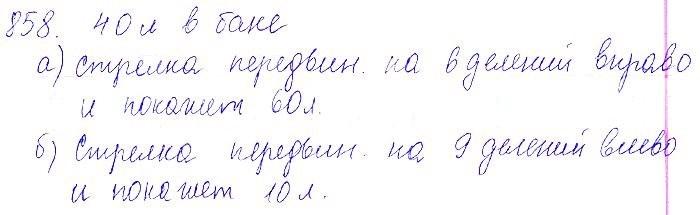 858. 40 л в баке
а) стрелка передвин. на 6 делений вправо
и покажет 60 л.
б) Стрелка передвин. на 9 делений влево
и покажет 10 л.